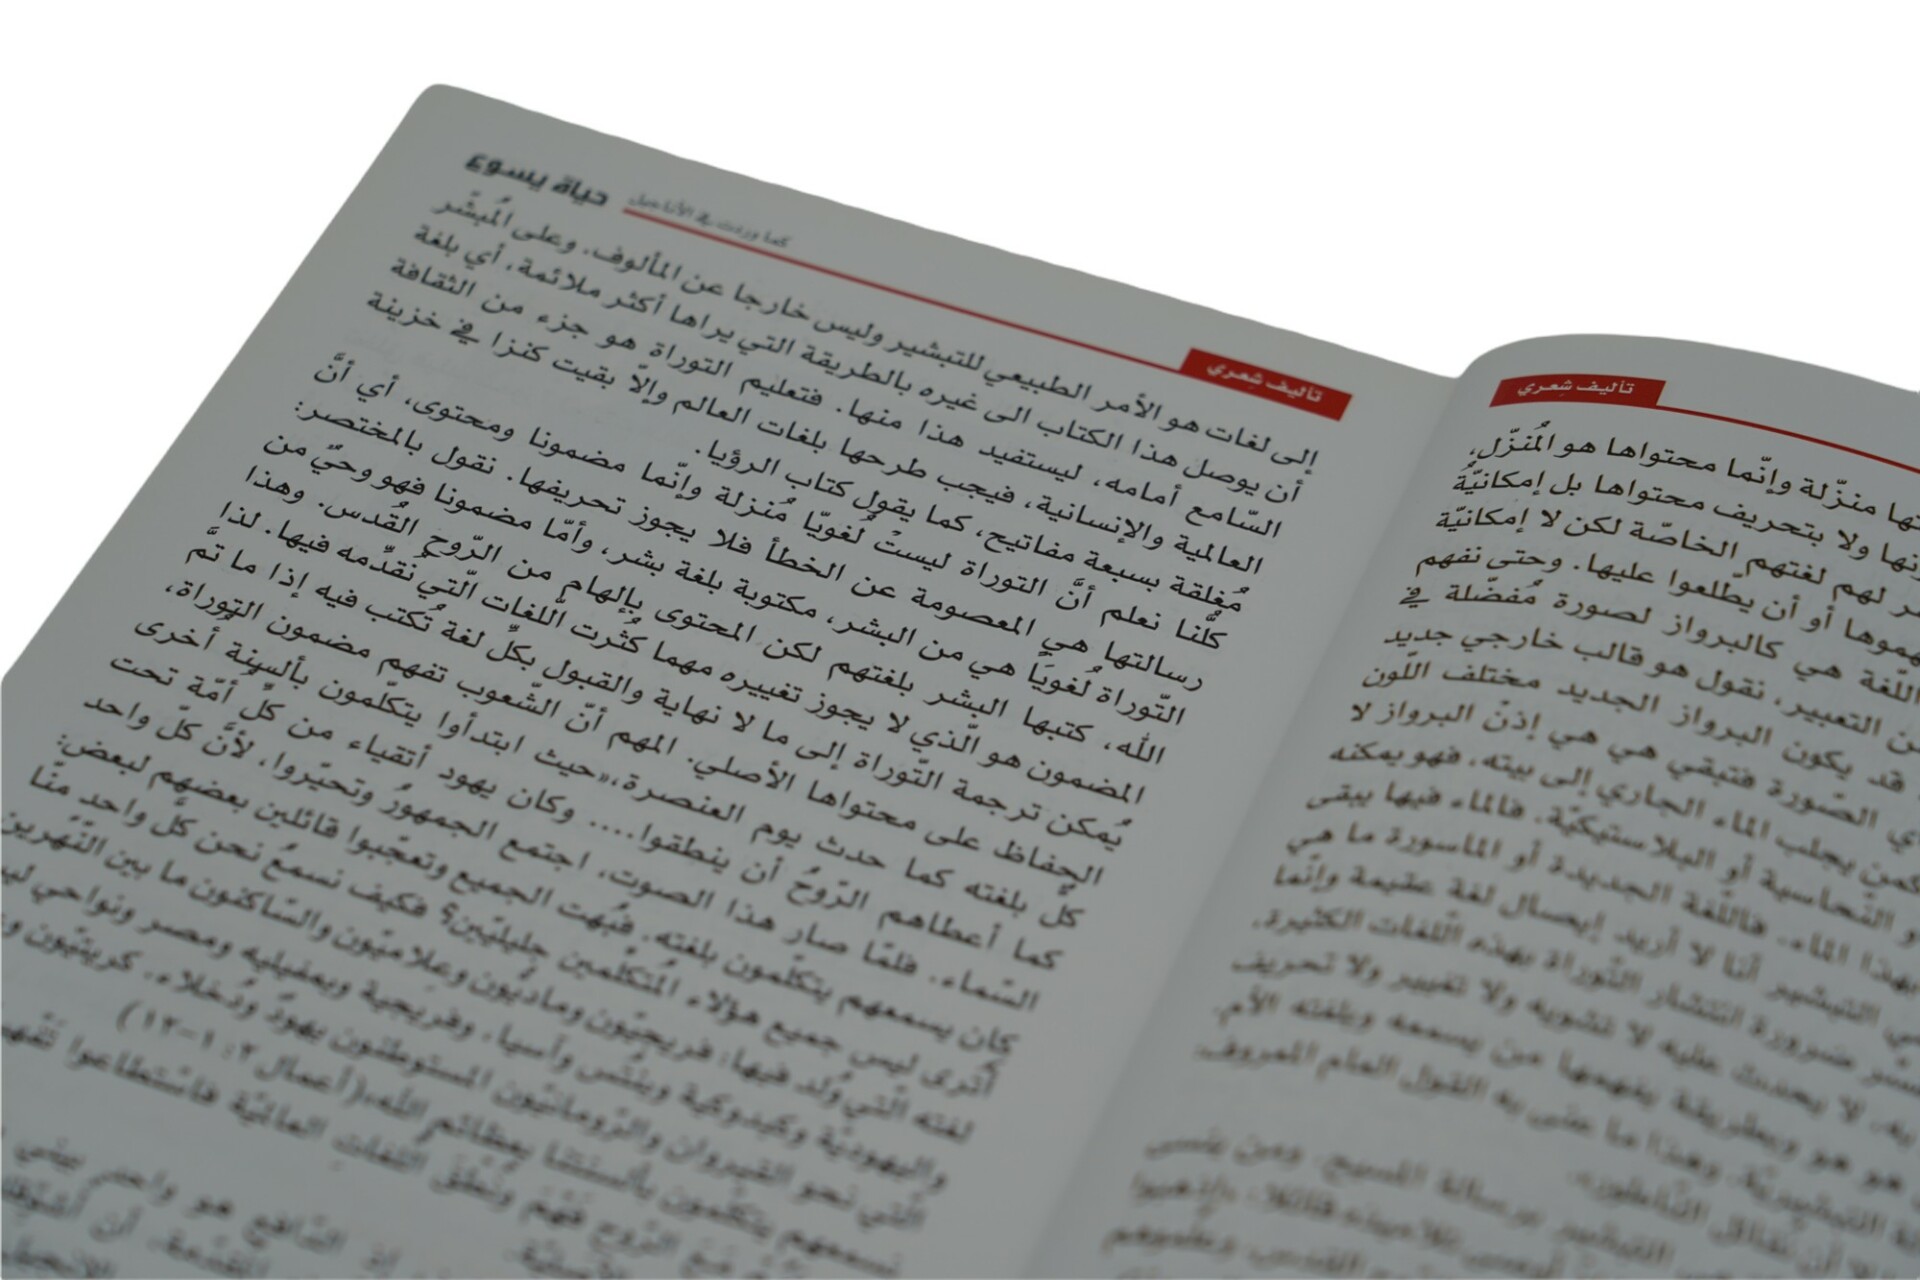 حياة يسوع
كما وردت في الأناجيل
تأليف شعري
إلى لغات هو الأمر الطبيعي للتبشير وليس خارجا عن المألوف. وعلى المُبشّر
أن يوصل هذا الكتاب الى غيره بالطريقة التي يراها أكثر ملائمة، أي بلغة
السّامع أمامه، ليستفيد هذا منها. فتعليم التوراة هو جزء من الثقافة
العالمية والإنسانية، فيجب طرحها بلغات العالم وإلاّ بقيت كنزا في خزينة
مُغلقة بسبعة مفاتيح، كما يقول كتاب الرؤيا.
كلّنا نعلم أنَّ التوراة ليستْ لُغويّا مُنزلة وإنّما مضمونا ومحتوى، أي أنَّ
رسالتها هي المعصومة عن الخطأ فلا يجوز تحريفها. نقول بالمختصر:
التّوراة لُغويَاً هي من البشر، مكتوبة بلغة بشر، وأمّا مضمونا فهو وحيٌ من
الله، كتبها البشر بلغتهم لكن المحتوى بإلهام من الرّوح القُدس. وهذا
المضمون هو الّذي لا يجوز تغييره مهما كثُرت اللّغات الّتي نُقدّمه فيها. لذا
يُمكن ترجمة التّوراة إلى ما لا نهاية والقبول بكلِّ لغة تُكتب فيه إذا ما تمَّ
الحِفاظ على محتواها الأصلي. المهم أنّ الشّعوب تفهم مضمون التوراة،
كلٌ بلغته كما حدث يوم العنصرة،«حيث ابتدأوا يتكلّمون بألسِنة أُخرى
كما أعطاهم الرّوحُ أن ينطقوا.... وكان يهود أتقياء من كلِّ أمّة تحت
السّماء. فلمّا صار هذا الصوت، اجتمع الجمهورُ وتحيّروا، لأنَّ كلّ واحد
كان يسمعهم يتكلّمون بلغته. فبُهت الجميع وتعجّبوا قائلين بعضهم لبعض:
أتُرى ليس جميع هؤلاء المُتكلّمين جليليّين؟ فكيف نسمعُ نحن كلَّ واحد منّا
لغته الّتي وُلد فيها: فريجيّون وماديّون وعِلاميّون والسّاكنون ما بين النّهرين
واليهوديّة وكبدوكية وبنتُس وآسيا. وفريجية وبمفيليه ومصر ونواحي
الّتي نحو القيروان والرّومانيّون المستوطنون يهودٌ ودُخلاء. كريتيّون
يتكلّمون بألسنتنا بعظائم الله»(أعمال ٢: ١-١٢)
الرّوح فَهْمَ ونُطْقَ اللّغات العالميّة فاسْتطاعوا
تأليف شعري
منزّلة وإنّما محتواها هو المُنزّل،
ولا بتحريف محتواها بل إمكانيّةُ
لهم لغتهم الخاصّة لكن لا إمكانيّة
أو أن يطّلعوا عليها. وحتى نفهم
اللّغة هي كالبرواز لصورة مُفضّلة في
التعبير، نقول هو قالب خارجي جديد
قد يكون البرواز الجديد مختلف اللّون
الصّورة فتبقى هي هي إذنْ البرواز لا
كمن يجلب الماء الجاري إلى بيته، فهو يمكنه
النّحاسية أو البلاستيكيّة. فالماء فيها يبقى
بهذا الماء. فاللّغة الجديدة أو الماسورة ما هي
التبشير أنا لا أريد إيصال لغة عقيمة وإنّما
ضرورة انتشار التّوراة بهذه اللّغات الكثيرة.
لا يحدث عليه لا تشويه ولا تغيير ولا تحريف
هو هو وبطريقة يفهمها من يسمعه وبلغته الأم.
وهذا ما عنى به القول العام المعروف:
برسالة المسيح. ومن ينسى